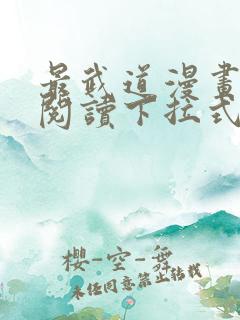 最武道漫畫
閱讀下拉式
櫻-空-舞
未經同意禁止轉載